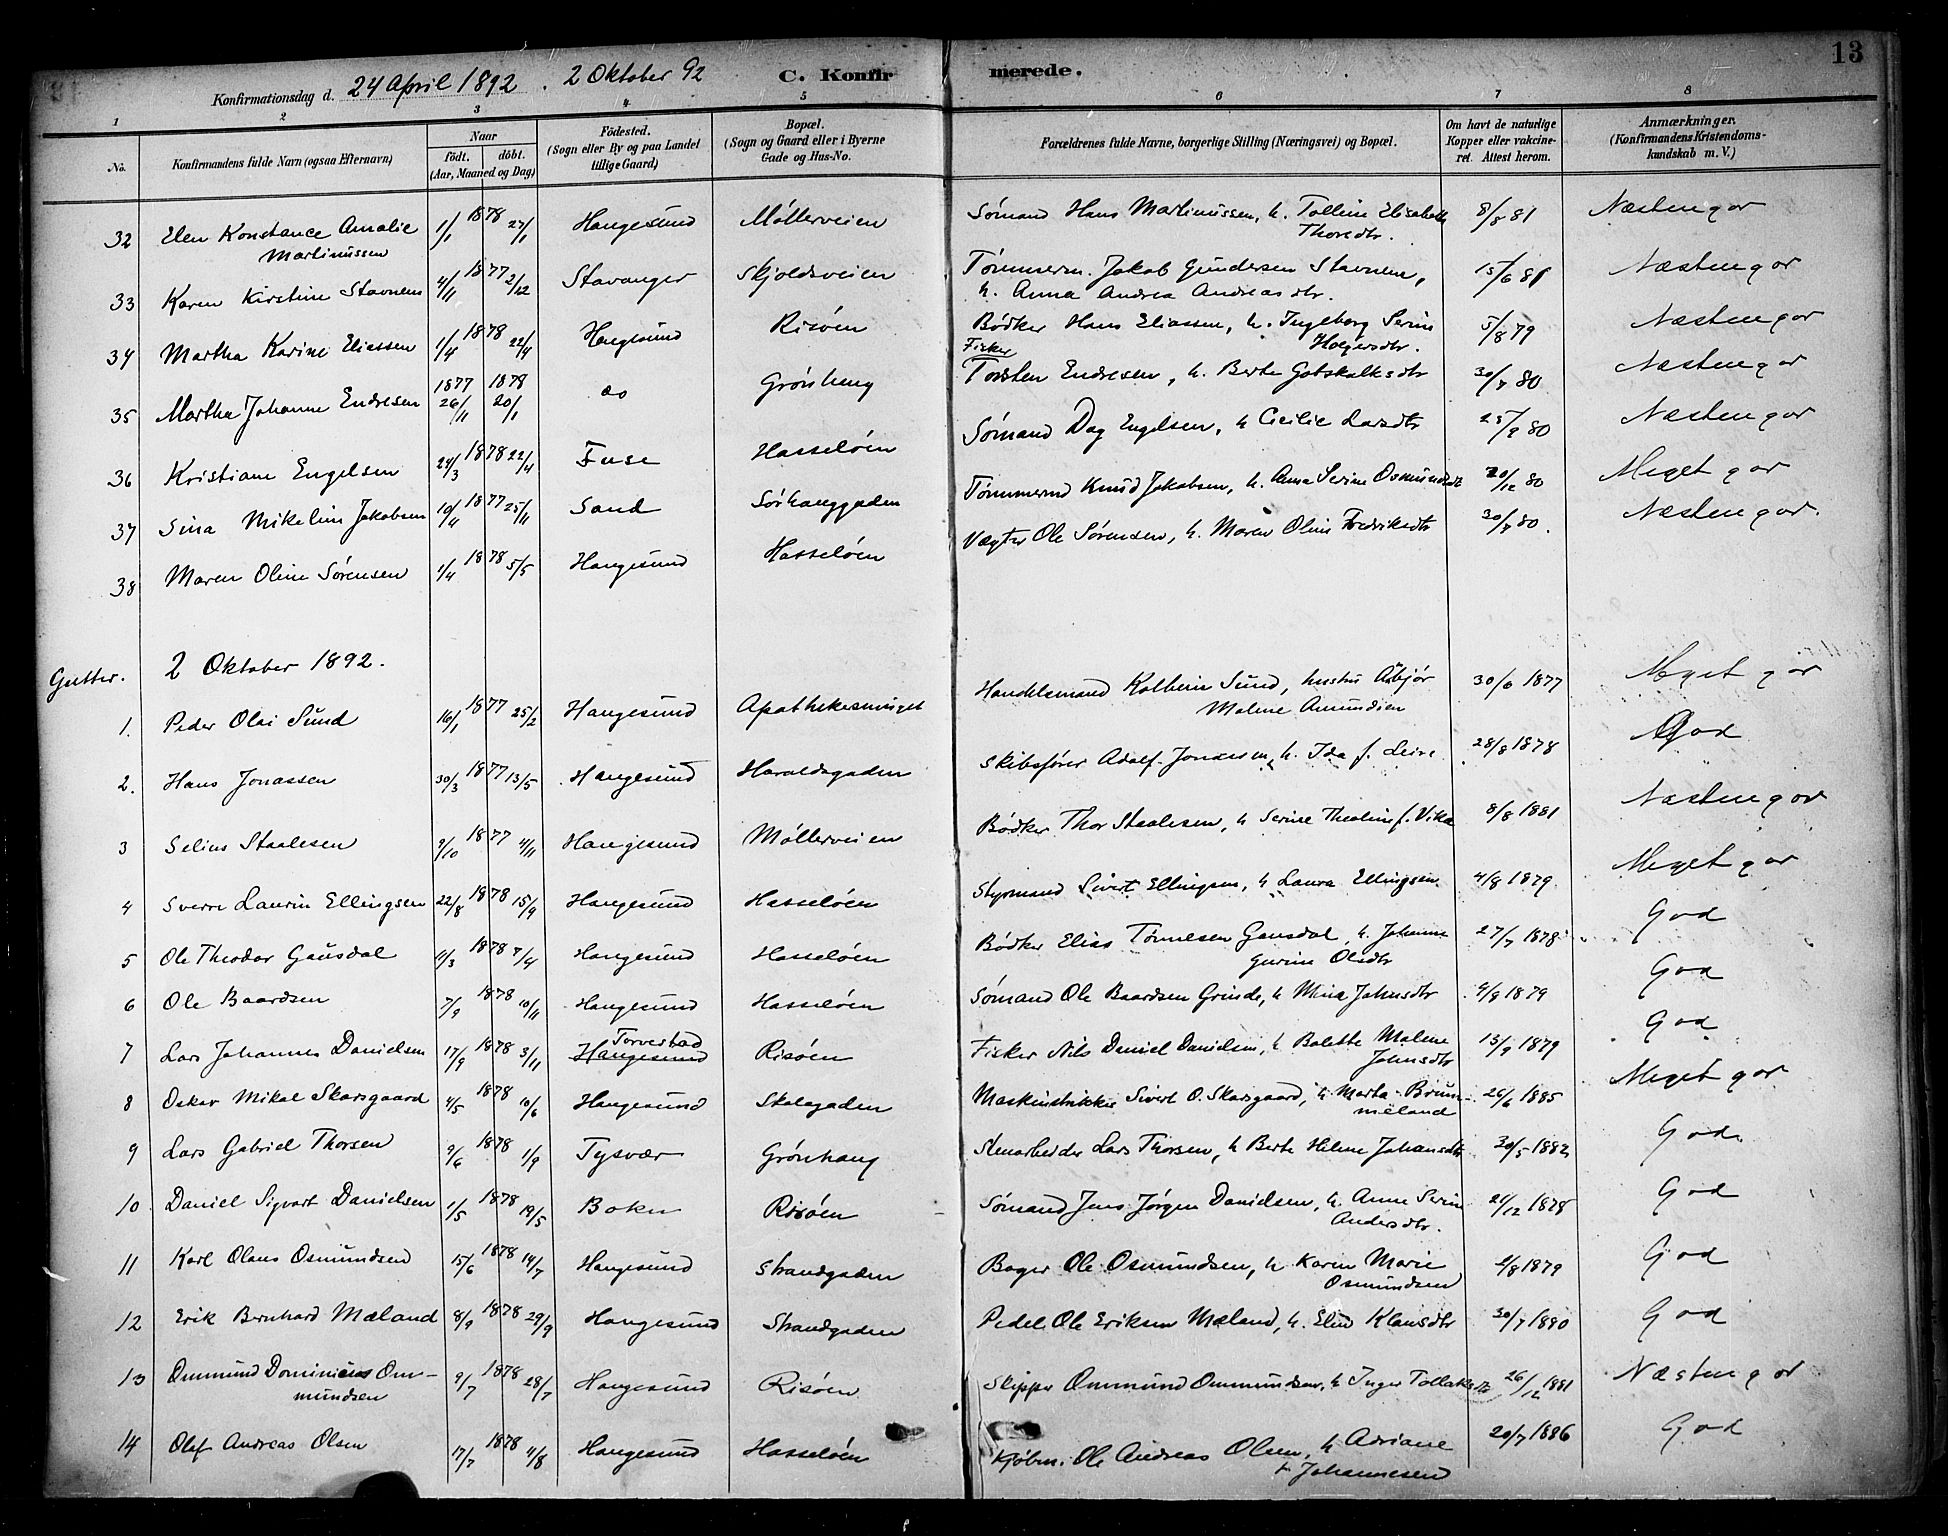 13
Konfirmationsdag d. 24 April 1892. 2 Oktober 92 C. Konfirmerede.
1 2 3 4 5 6 7 8
No. Konfirmandens fulde Navn (ogsaa Efternavn) Naar født. døbt. (Aar, Maaned og Dag) Födested. (Sogn eller By og paa Landet tillige Gaard) Bopæl. (Sogn og Gaard eller i Byerne Gade og Hus-No. Forældrenes fulde Navne, borgerlige Stilling (Næringsvei) og Bopæl. Om havt de naturlige Kopper eller vakcineret. Attest herom. Anmærkninger. (Konfirmandens Kristendomskundskab m. V.)
32 Elen Konstance Amalie Martinussen 1/1 1878 27/1 Haugesund Møllerveien Sømand Hans Martinussen, h. Talline Elisabeth Thoresdtr. 8/8 81 Næsten g or
33 Karen Kirstine Stavnem 4/11 1877 2/12 Stavanger Skjoldsveien Tømmerm. Jakob Gundersen Stavnem, h. Anna Andrea Andreasdtr. 15/6 81 Næsten g or
34 Martha Karine Eliassen 1/4 1878 22/4 Haugesund Risøen Bødker Hans Eliassen, h. Ingeborg Serine Holgersdtr. 5/8 79 Næsten g or
35 Martha Johanne Endresen 1877 26/11 1878 20/1 do Grønhaug Fisker Torsten Endresen, h. Berte Gotskalksdtr 30/7 80 Næsten g or
36 Kristiane Engelsen 24/3 1878 22/4 Fuse Hasseløen Sømand Dag Engelsen, h Cicilie Larsdtr 25/9 80 Næsten g or
37 Sina Mikeline Jakobsen 10/11 1877 25/11 Sand Sørhauggaden Tømmermd Knud Jakobsen, h. Anna Serine Osmundsdtr 20/12 80 Meget g or
38 Maren Oline Sørensen 1/4 1878 5/5 Haugesund Hasseløen Vægter Ole Sørensen, h. Maren Oline Fredriksdtr 30/7 80. Næsten g or.
Gutter. 2 Oktober 1892.
1. Peder Olai Sund 16/1 1877 25/2 Haugesund Apothekersmuget Handelsmand Kolbein Sund, hustru Asbjør Malene Amundsen 30/6 1877 Meget g or
2. Hans Jonassen 30/3 1877 13/5 Haugesund Haraldsgaden Skibsfører Adolf Jonassen, h. Ida f. Leire 28/8 1878 God
3 Selius Staalesen 9/10 1877 4/11 Haugesund Møllerveien Bødker Thor Staalesen, h Serine Theoline f. Vika 8/8 1881 Næsten g or
4 Sverre Laurin Ellingsen 22/8 1878 15/9 Haugesund Hasseløen Styrmand Sivert Ellingsen, h Laura Ellingsen. 4/8 1879. Meget g or
5 Ole Theodor Gausdal 11/3 1878 7/4 Haugesund Hasseløen Bødker Elias Tønnesen Gausdal, h. Johanne Gurine Olsdtr 27/7 1878 God
6 Ole Baardsen 7/9 1878 10/11 Haugesund Hasseløen Sømand Ole Baardsen Grinde, h Mina Johnsdtr 9/9 1879 God
7 Lars Johannes Danielsen 17/9 1878 3/11 Torvestad Haugesund Risøen Fisker Nils Daniel Danielsen, h Bolette Malene Johnsdtr 13/9 1879 God
8 Oskar Mikal Skarsgaard 4/5 1878 10/6 Haugesund Skolegaden Maskinstrikker Sivert O. Skarsgaard, h. Marta Brummeland 26/6 1885 Meget g or
9 Lars Gabriel Thorsen 9/6 1878 1/9 Tysvær Grønhaug Stenarbeider Lars Thorsen, h Berte Helene Johansdtr 30/5 1882 God.
10 Daniel Sigvart Danielsen 1/5 1878 19/5 Boken Risøen Sømand Jens Jørgen Danielsen, h. Anne Serine Andersdtr. 21/12 1878 God
11 Karl Olaus Osmundsen 15/6 1878 14/7 Haugesund Strandgaden Bager Ole Osmundsen, h Karen Marie Osmundsen 2/8 1879 God
12 Erik Bernhard Mæland 8/9 1878 29/9 Haugesund Strandgaden Pedel Ole Eriksen Mæland, h. Elen Klausdtr 30/7 1890 God
13 Ommund Dominicus Ommundsen 9/7 1878 28/7 Haugesund Risøen Skipper Ommund Ommundsen, h Inger Tollaksdtr 26/12 1881 Næsten g or
14 Olaf Andreas Olsen 17/7 1878 4/8 Haugesund Hasseløen Kjøbm. Ole Andreas Olsen, h Adriane f. Johannesen 20/7 1886 God